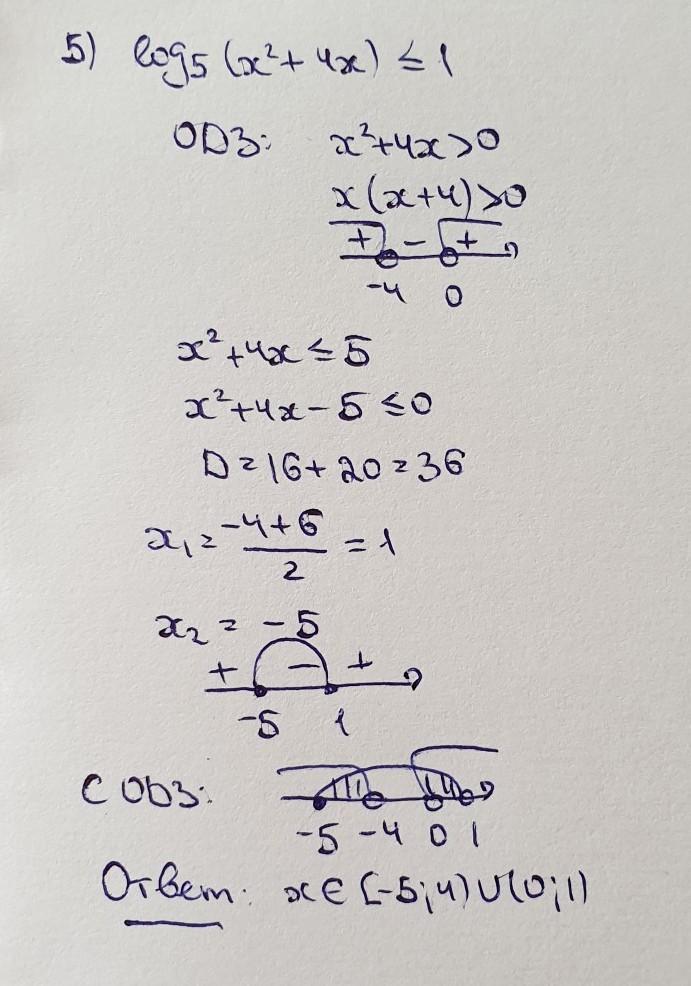 5) log₅(x²+4x) ≤ 1
ОДЗ: x²+4x>0
x(x+4)>0
+ - +
-4 0
x²+4x ≤ 5
x²+4x-5 ≤0
D=16+20=36
x₁=(-4+6)/2=1
x₂=-5
+ - +
-5 1
С ОДЗ:
-5 -4 0 1
Ответ: x∈[-5;4)∪(0;1)